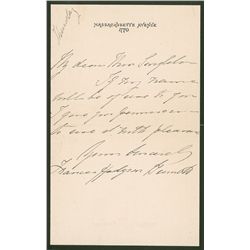 MASSACHUSETTS AVENUE
1770
My dear Mrs. Singleton
If my name
will be of use to you
I give you permission
to use it with pleasure
Yours sincerely
Frances Hodgson Burnett